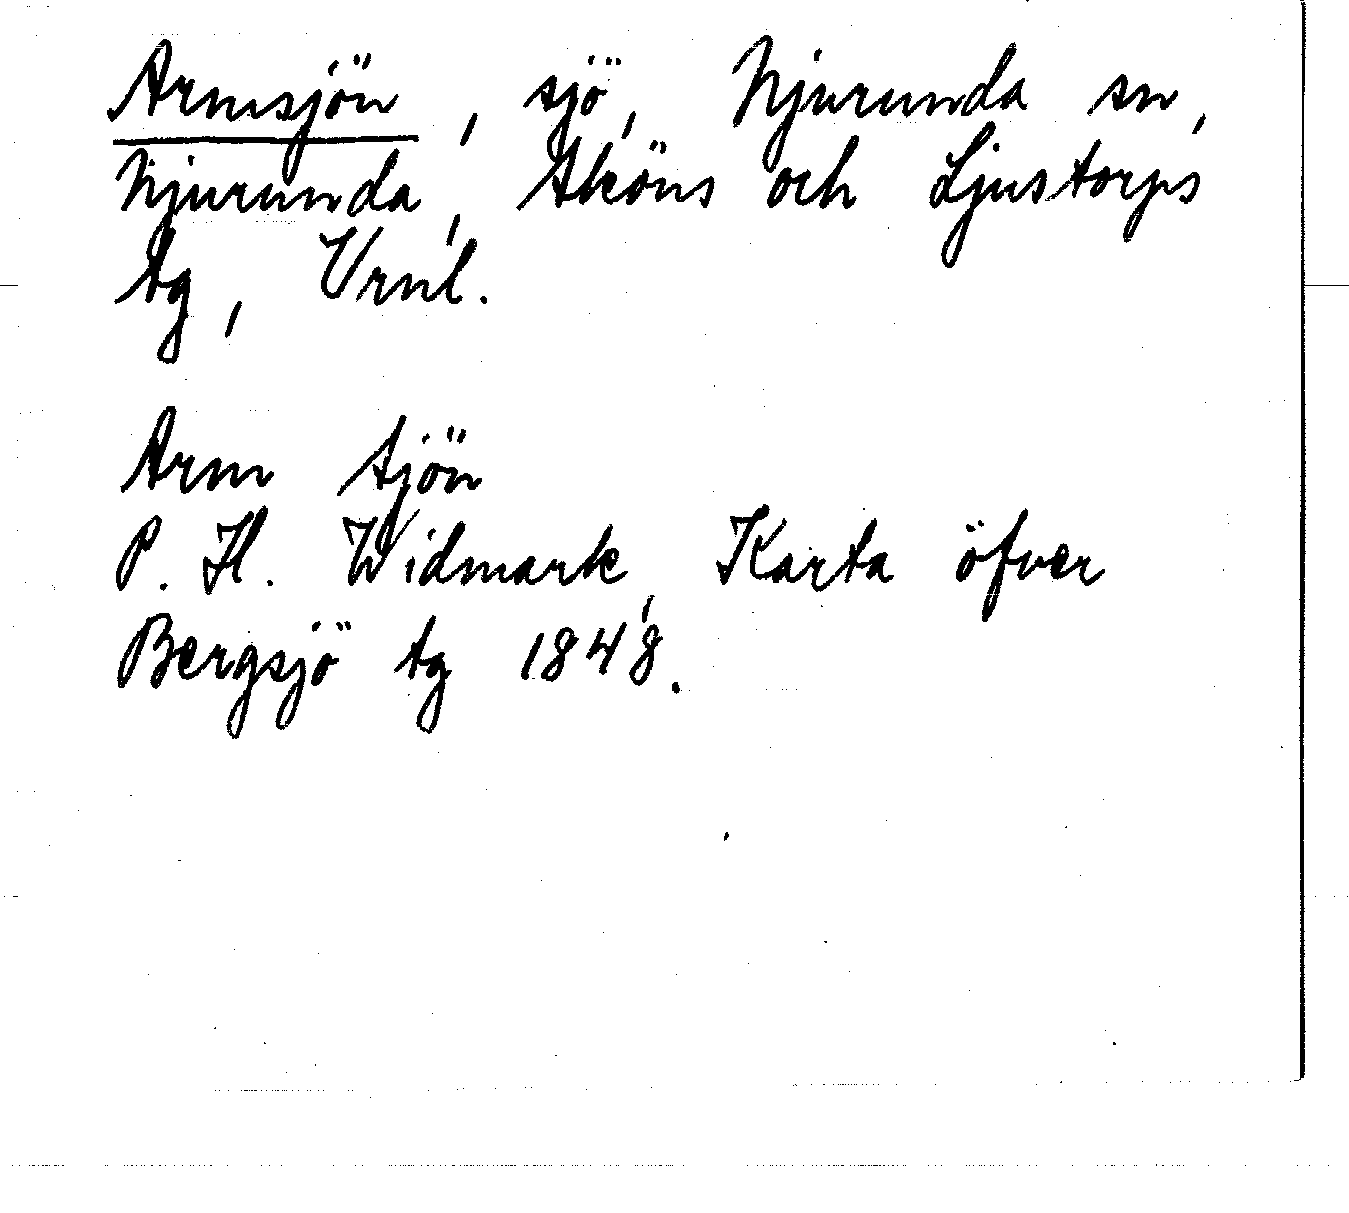 Armsjön, sjö, Njurunda sn,
Njurunda, Sköns och Ljustorps
tg, Vrnl.
Arm Sjön
P. H. Widmark, Karta öfver
Bergsjö tg 1848.